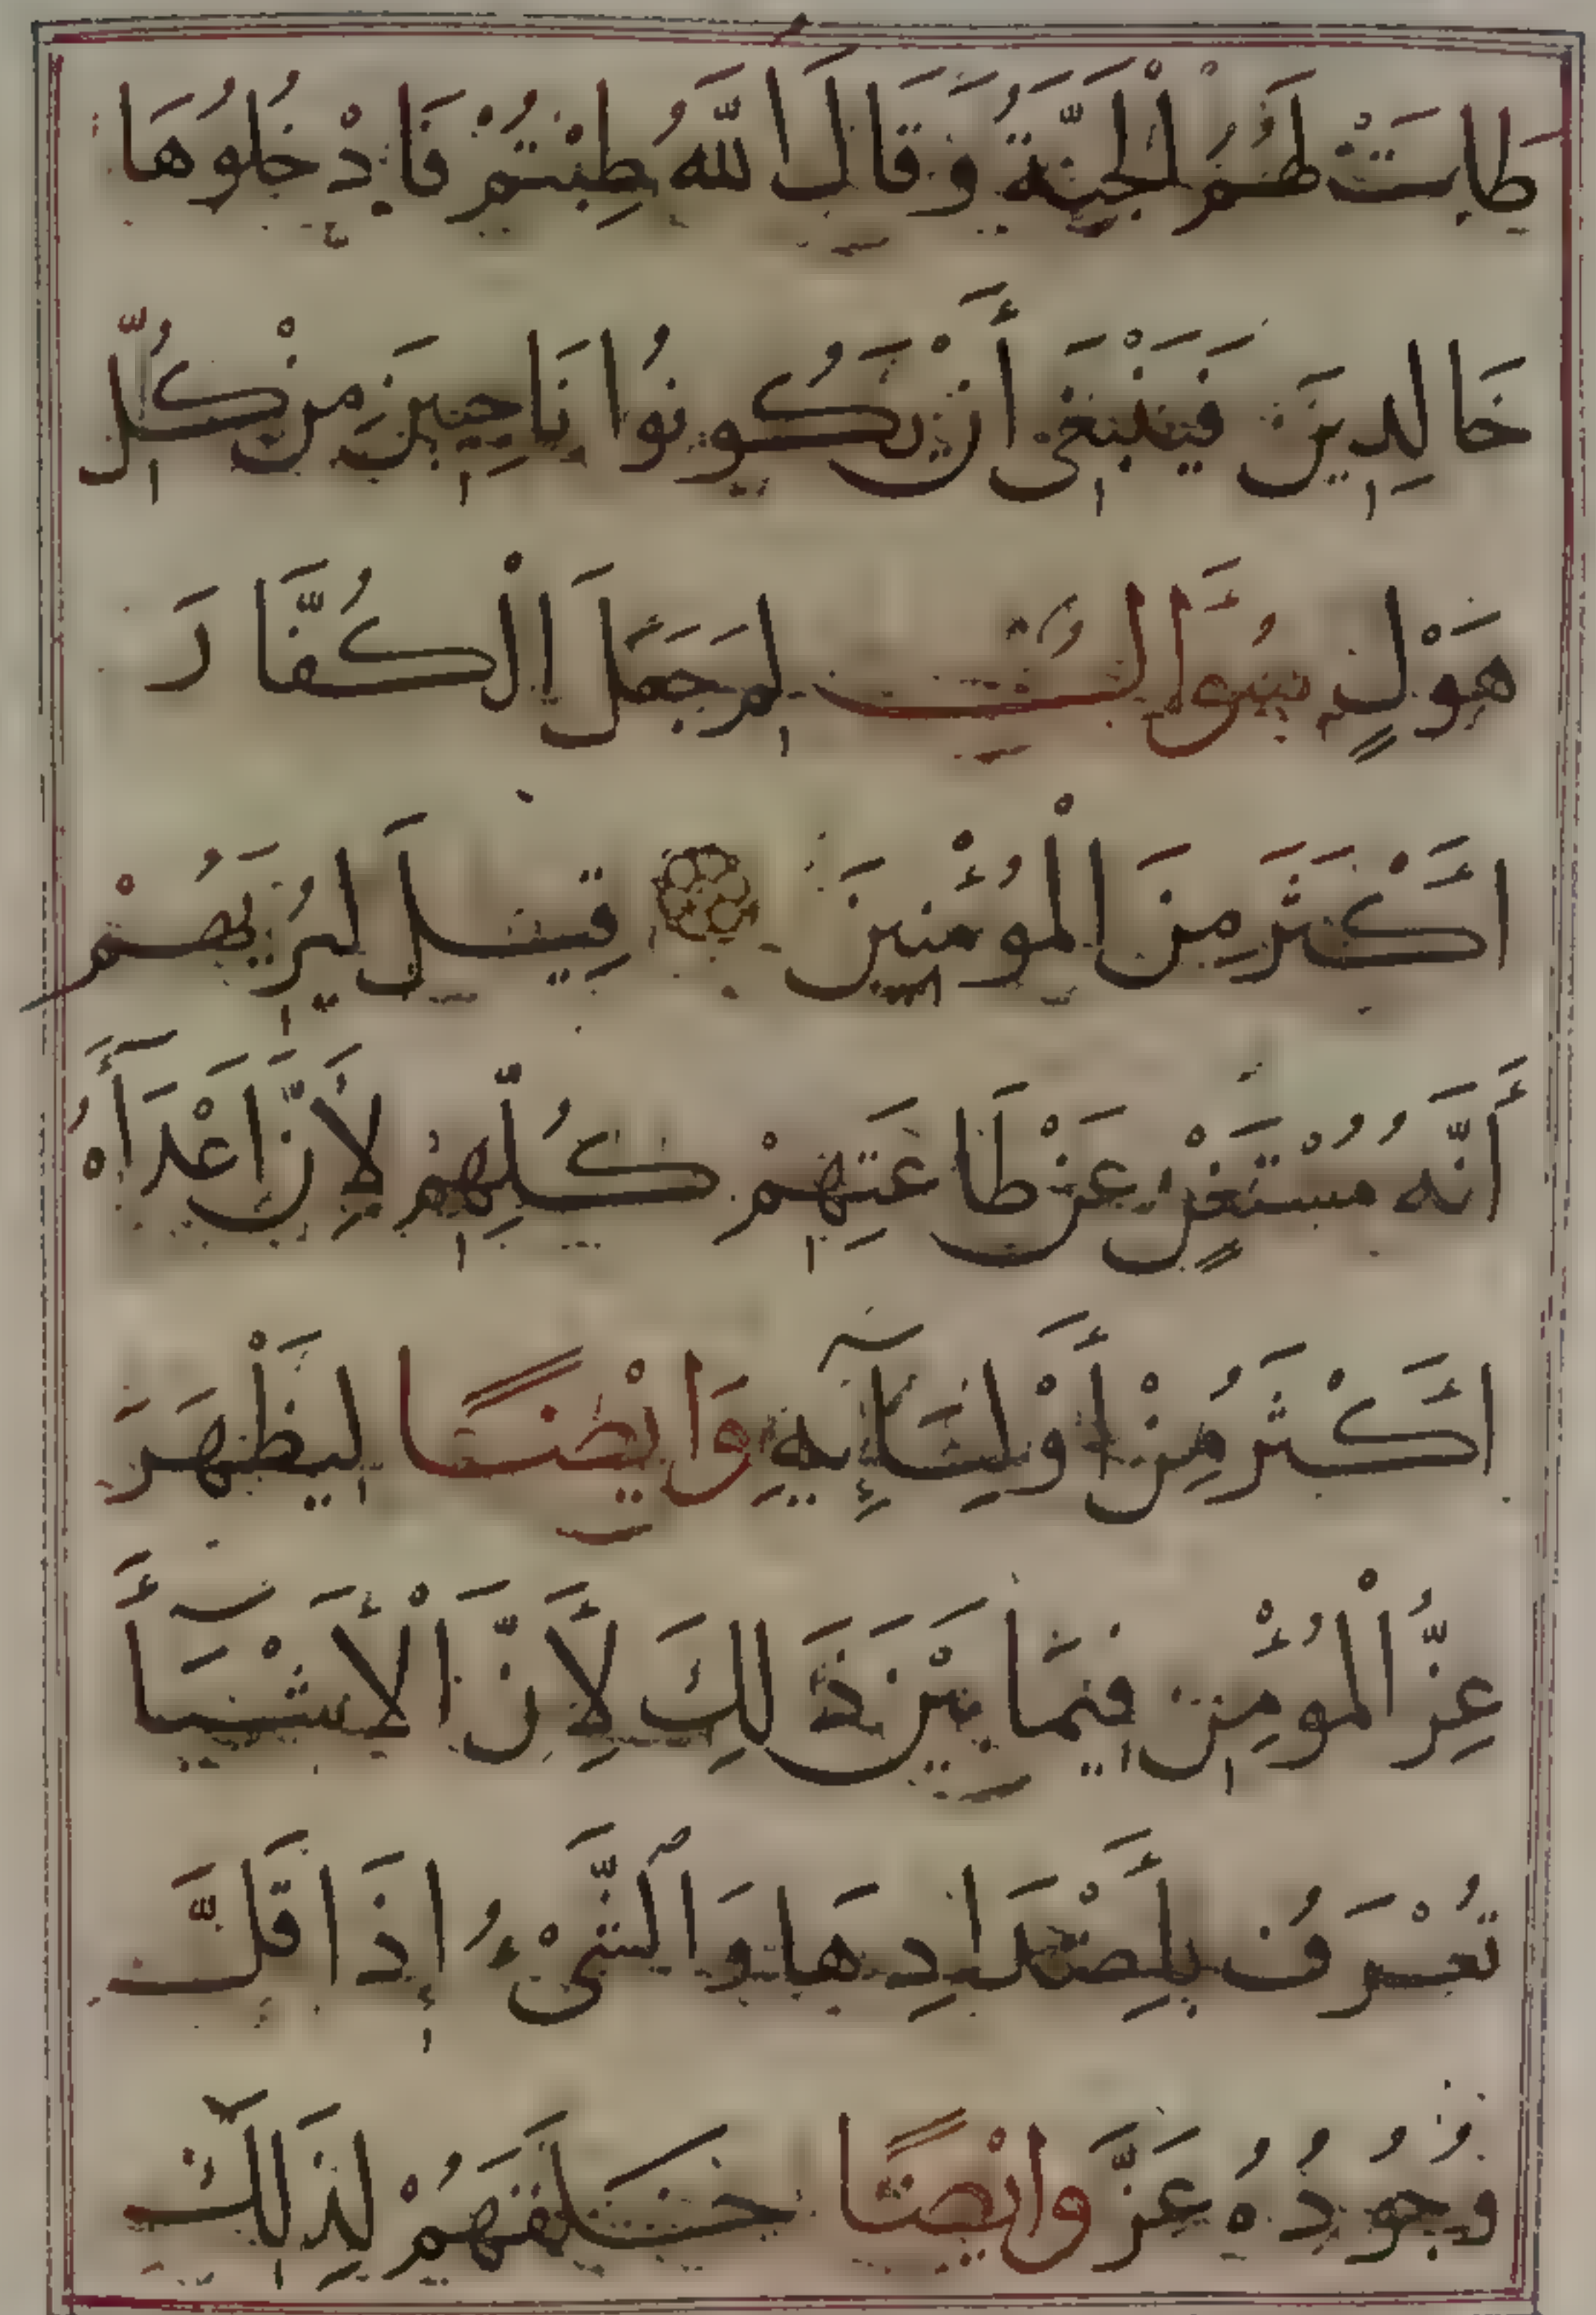 طَابَتْ لَهُمُ الْجَنَّةُ وَقَالَ اللَّهُ طِبْتُمْ فَادْخُلُوهَا
خَالِدِينَ فَيَنْبَغِي أَنْ يَكُونُوا نَاجِينَ مِنْ كُلِّ
هَوْلٍ سُؤَالٌ لِمَ جَعَلَ الْكُفَّارَ
أَكْثَرَ مِنَ الْمُؤْمِنِينَ قِيلَ لِيُرِيَهُمْ
أَنَّهُ مُسْتَغْنٍ عَنْ طَاعَتِهِمْ كُلِّهِمْ لِأَنَّ أَعْدَآءَهُ
أَكْثَرُ مِنْ أَوْلِيَآئِهِ وَايْضًا لِيَظْهَرَ
عِزُّ الْمُؤْمِنِ فِيمَا بَيْنَ ذَلِكَ لِأَنَّ الْأَشْيَآءَ
تُعْرَفُ بِأَضْدَادِهَا وَالشَّيْءُ إِذَا قَلَّ
وُجُودُهُ عَزَّ وَايْضًا خَلَقَهُمْ لِذَلِكَ